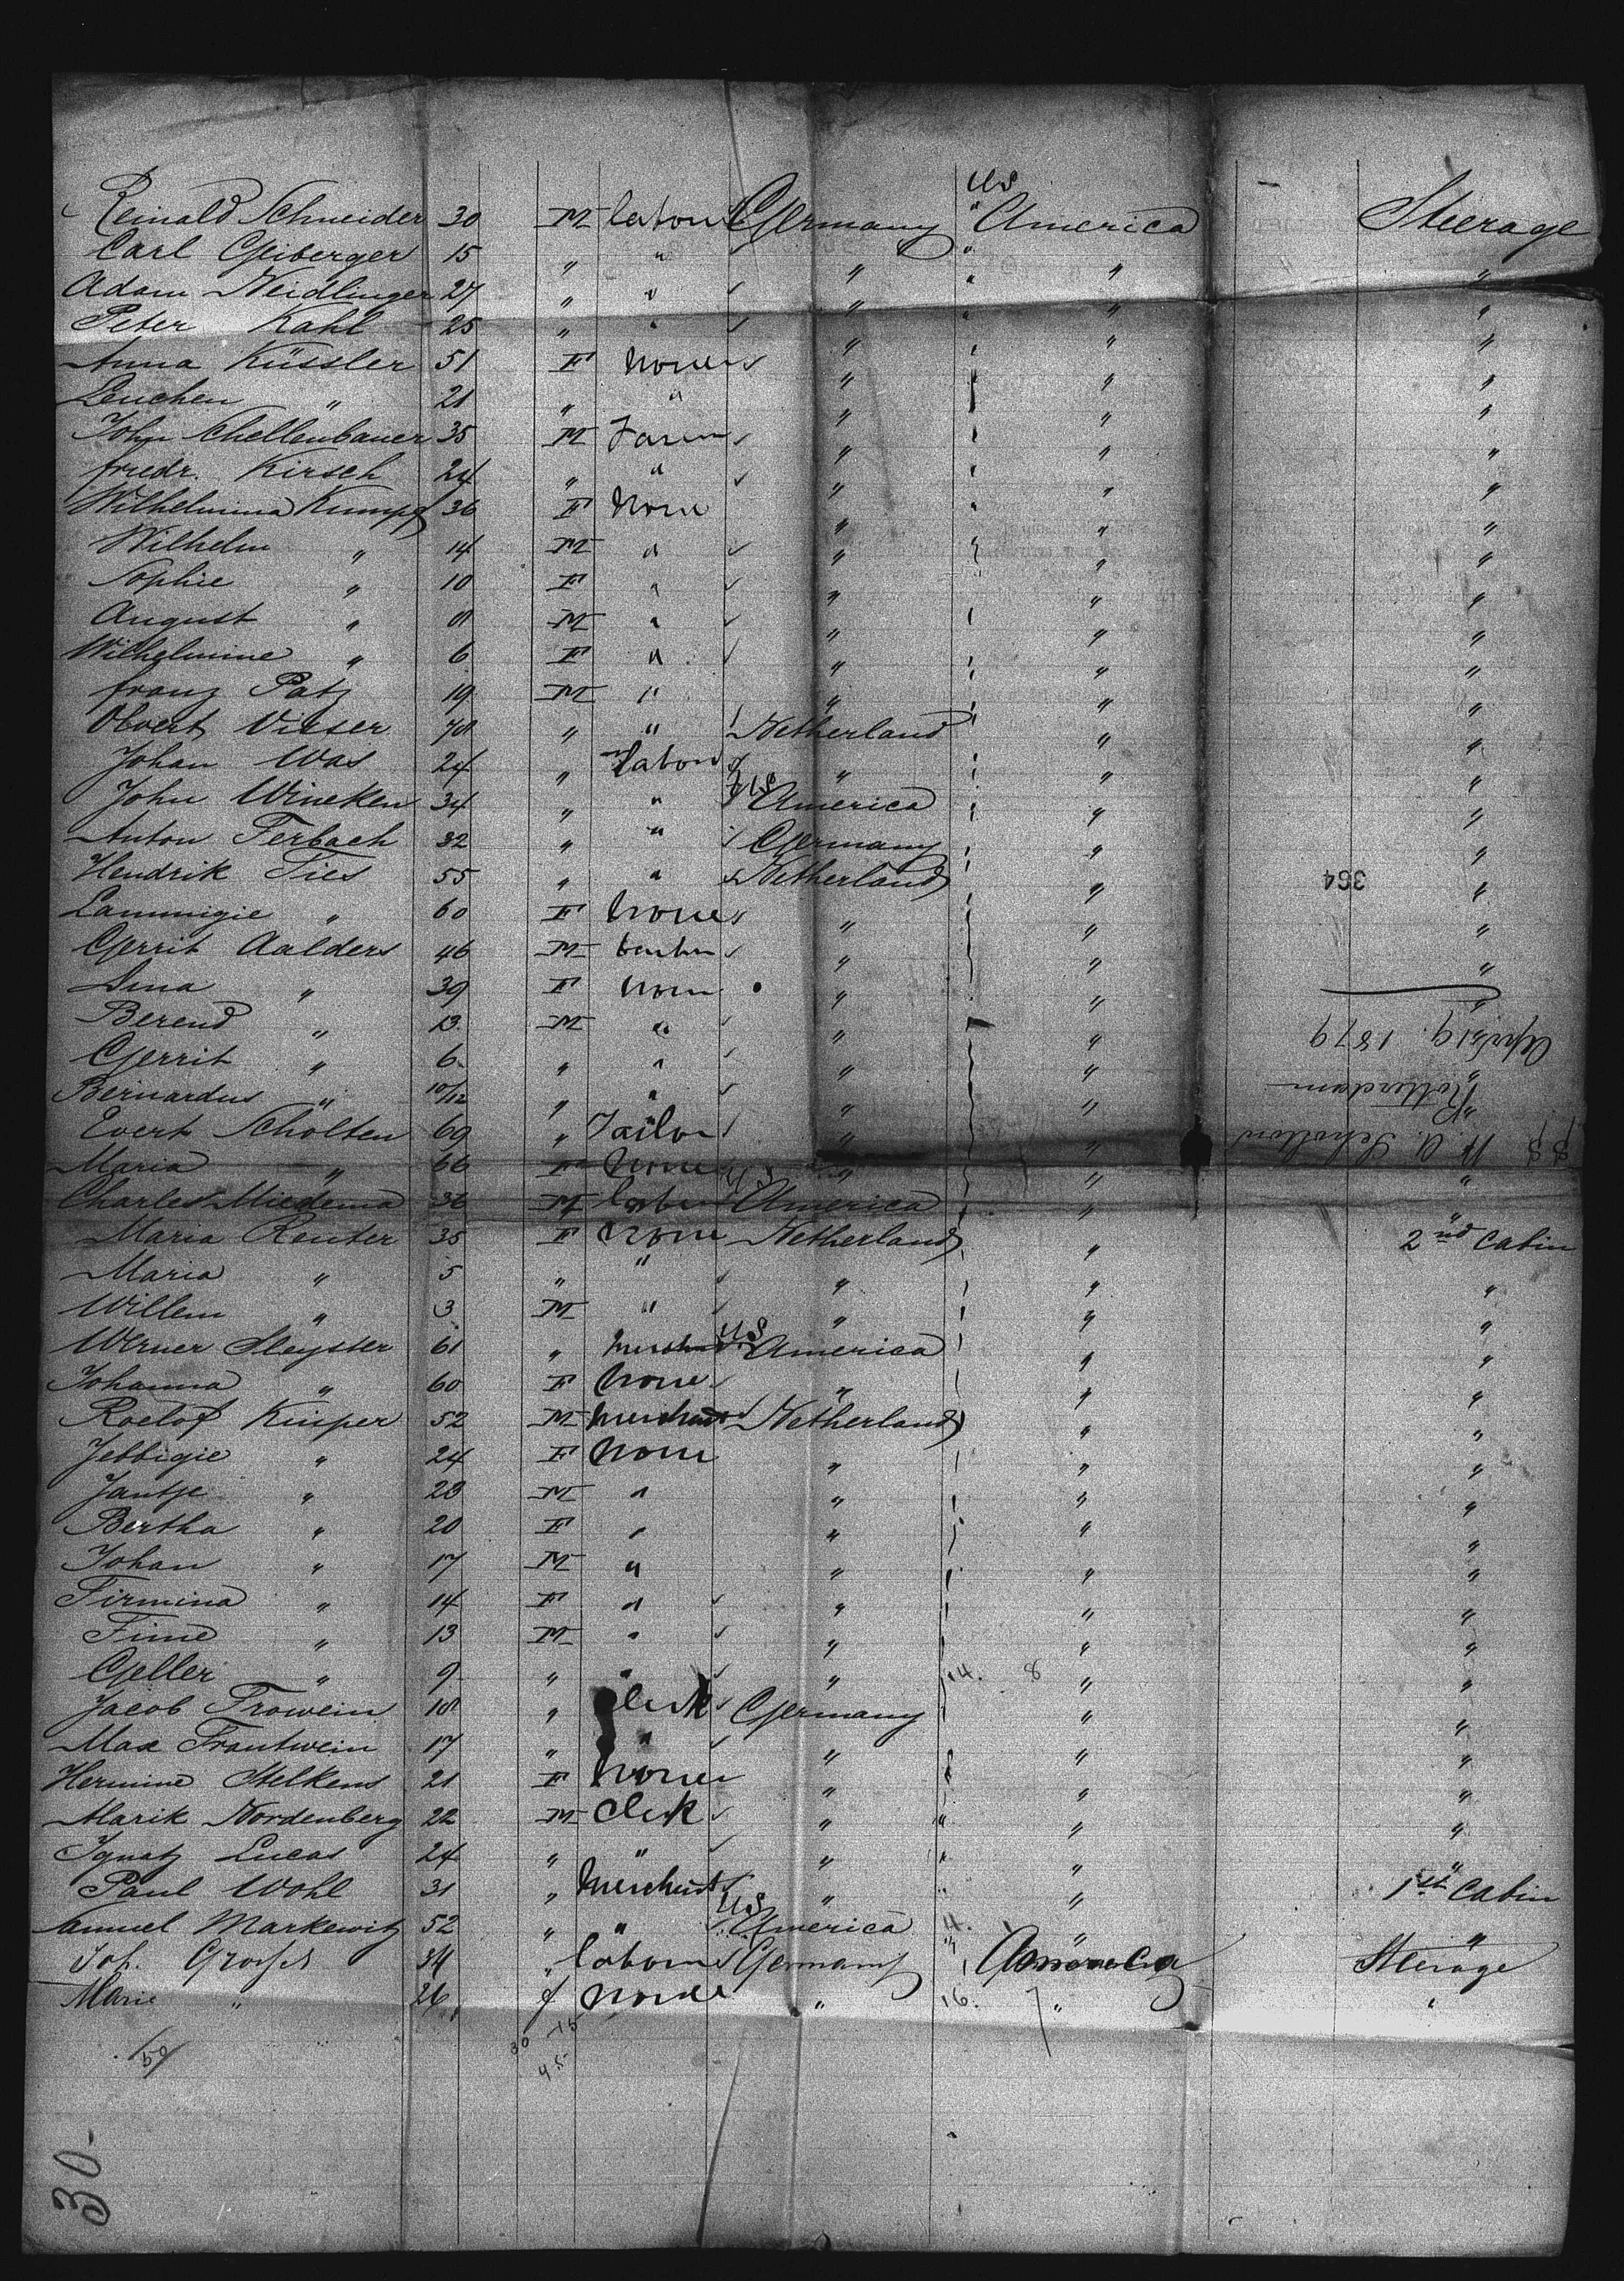 US
Reinald Schneider 30 M labour Germany " America Steerage
Carl Geiberger 15 " " " " " "
Adam Neidlinger 27 " " " " " "
Peter Kahl 25 " " " " "
Anna Küssler 51 F none " " "
Lenchen " 21 " " " " "
John Schellenbauer 35 M Farm " " "
friedr. Kirsch 24 " " " " "
Wilhelmina Kumpf 36 F none " " "
Wilhelm " 14 M " " " "
Sophie " 10 F " " " "
August " 8 M " " " "
Wilhelmine " 6 F " " " "
franz Patz 19 M " " " "
Visser 78 " " Netherland " "
Johan Was 24 " labour " " "
John Wineken 34 " " US America " "
Anton Terbach 32 " " Germany " "
Hendrik Ties 55 " " Netherland " "
Lammigie " 60 F none " " "
Gerrit Aalders 46 M " " "
Dina " 39 F none " " "
Berend " 13 M " " " "
Gerrit " 6 " " " " "
Bernardus " 10/12 " " " " "
Evert Scholten 69 " Tailor " " "
Maria " 66 F none " " "
Charles Miedema 36 M labour US America " "
Maria Reuter 35 F none Netherland " 2nd Cabin
Maria " 5 " " " " "
Willem " 3 M " " " "
Werner Sleyster 61 " merchant US America " "
Johanna " 60 F none " " "
Roelof Kuiper 52 M merchant Netherland " "
Jebbigie " 24 F none " " "
Jantje " 23 M " " " "
Bertha " 20 F " " " "
Johan " 17 M " " " "
Firmina " 14 F " " " "
Time " 13 M " " " "
Geller " 9 " " " 14. 8 " "
Jacob Frowein 18 " clerk Germany " "
Max Trautwein 17 " " " " "
Hermine Stelkens 21 F none " " "
Marik Nordenberg 22 M Clerk " " " "
Ignatz Lucas 24 " " " " " "
Paul Wohl 31 " Merchant " " " 1st Cabin
Samuel Markewitz 52 " " US America 4. 1 " "
Joh. 34 " labourer Germany America Sterage
Marie " 26 f none " 16. 7 " "
50
30 15
45
30-
364
April 19. 1879
Rotterdam
SS W. A. Scholten